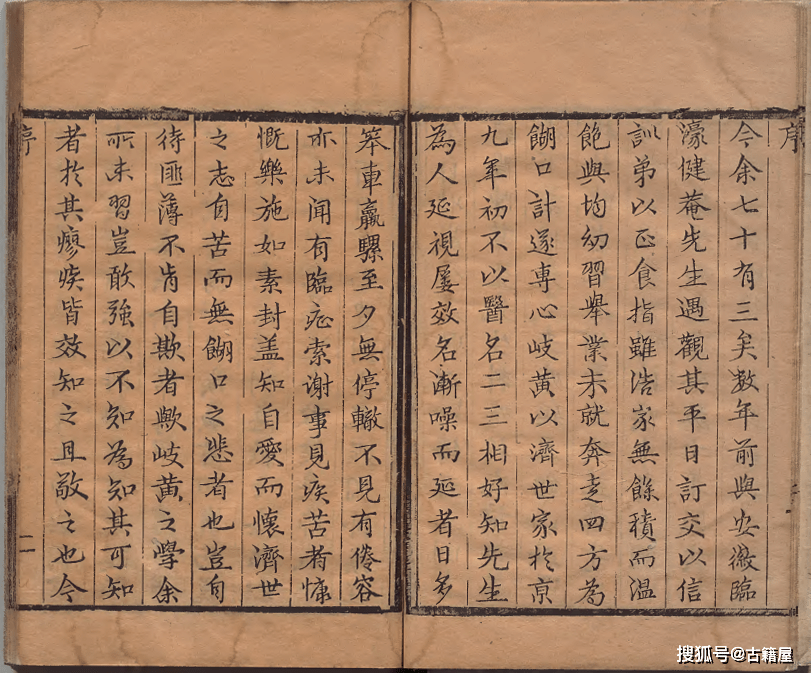 序
今余七十有三矣数年前與安徽臨
濠健菴先生遇觀其平日訂交以信
訓弟以正食指雖浩家無餘積而温
飽與均幼習舉業未就奔走四方為
餬口計遂專心岐黄以濟世家於京
九年初不以醫名二三相好知先生
為人延視屡效名漸噪而延者日多
筞車羸騾至夕無停轍不見有倦容
亦未闻有臨症索谢事見疾苦者慷
慨樂施如素封盖知自愛而懷濟世
之志自苦而無餬口之悲者也豈自
待匪薄不肯自欺者歟岐黄之學余
所未習豈敢強以不知為知其可知
者於其瘳疾皆效知之且敬之也今
序
二
搜狐号@古籍屋